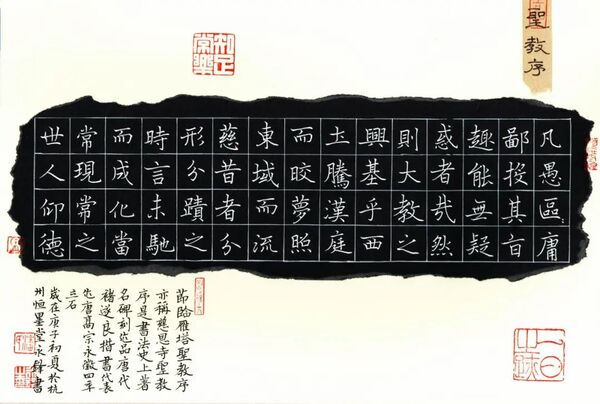 聖教序
知足常樂
凡愚區庸
鄙投其旨
趣能無疑
惑者哉然
則大教之
興基乎西
土騰漢庭
而皎夢照
東域而流
慈昔者分
形分蹟之
時言未馳
而成化當
常現常之
世人仰德
節臨雁塔聖教序
亦稱慈恩寺聖教
序是書法史上著
名碑刻作品唐代
褚遂良楷書代表
作唐高宗永徽四年
立石
歲在庚子初夏於杭
州恒墨堂永鋒書